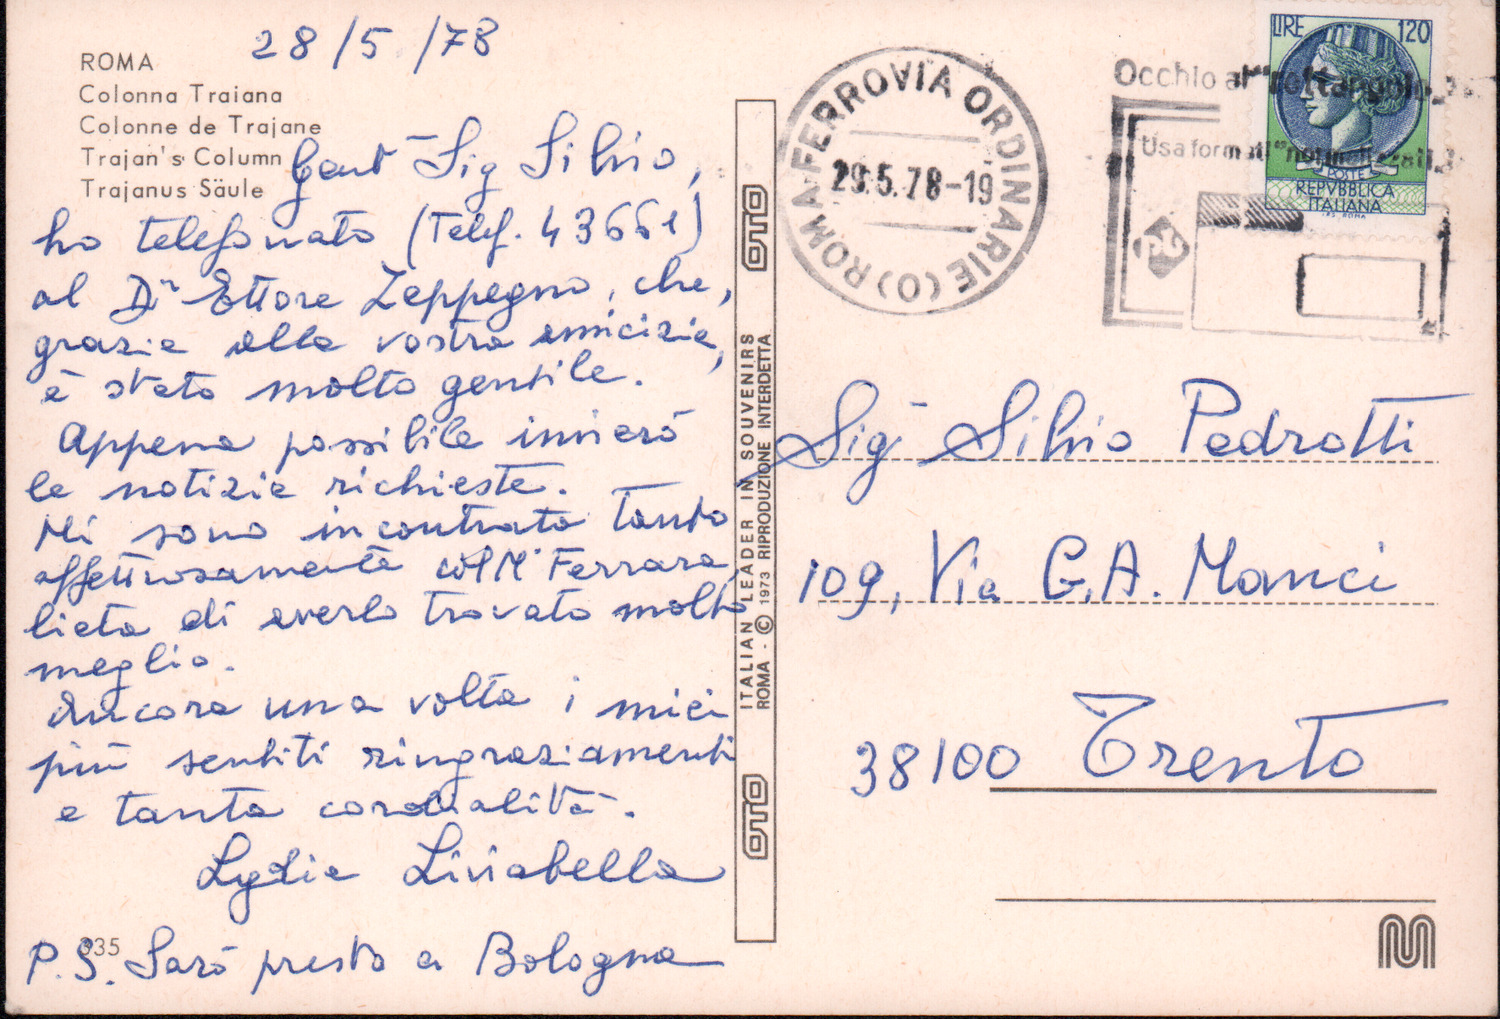 28/5/78
ROMA
Colonna Traiana
Colonne de Trajane
Trajan's Column
Trajanus Säule
Gent Sig Silvio,
ho telefonato (Telef. 43661)
al Dr Ettore Zeppegno, che,
grazie alla vostra amicizia,
è stato molto gentile.
Appena possibile invierò
le notizie richieste.
Mi sono incontrata tanto
affettuosamente col M° Ferrara,
lieta di averlo trovato molto
meglio.
Ancora una volta i miei
più sentiti ringraziamenti
e tanta cordialità.
Lydia Liviabella
P.S. Sarò presto a Bologna
635
OTO
ITALIAN LEADER IN SOUVENIRS
ROMA - © 1973 RIPRODUZIONE INTERDETTA
OTO
ROMA FERROVIA ORDINARIE (O)
29.5.78-19
Occhio al "rettangolo"
Usa formati "normalizzati"
LIRE 120
POSTE
REPVBBLICA
ITALIANA
I.P.S. ROMA
Sig Silvio Pedrotti
109, Via G.A. Manci
38100 Trento